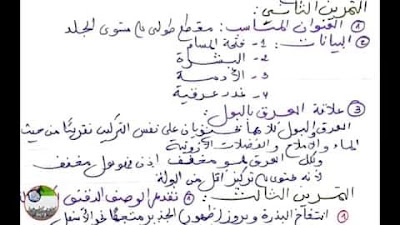 التمرين الثاني:
① العنوان المناسب: مقطع طولي في مستوى الجلد
② البيانات: 1- فتحة المسام
2- البشرة
3- الأدمة
4- غدد عرقية
③ علاقة العرق بالبول:
العرق والبول كلاهما يحتويان على نفس التركيب تقريبًا من حيث
الماء والأملاح والفضلات الآزوتية
ولكن العرق هو مخفف اذن فهو بول مخفف
لأنه يحتوي تركيز أقل من البولة
التمرين الثالث: ① تقديم الوصف الدقيق
① انتفاخ البذرة وبروز